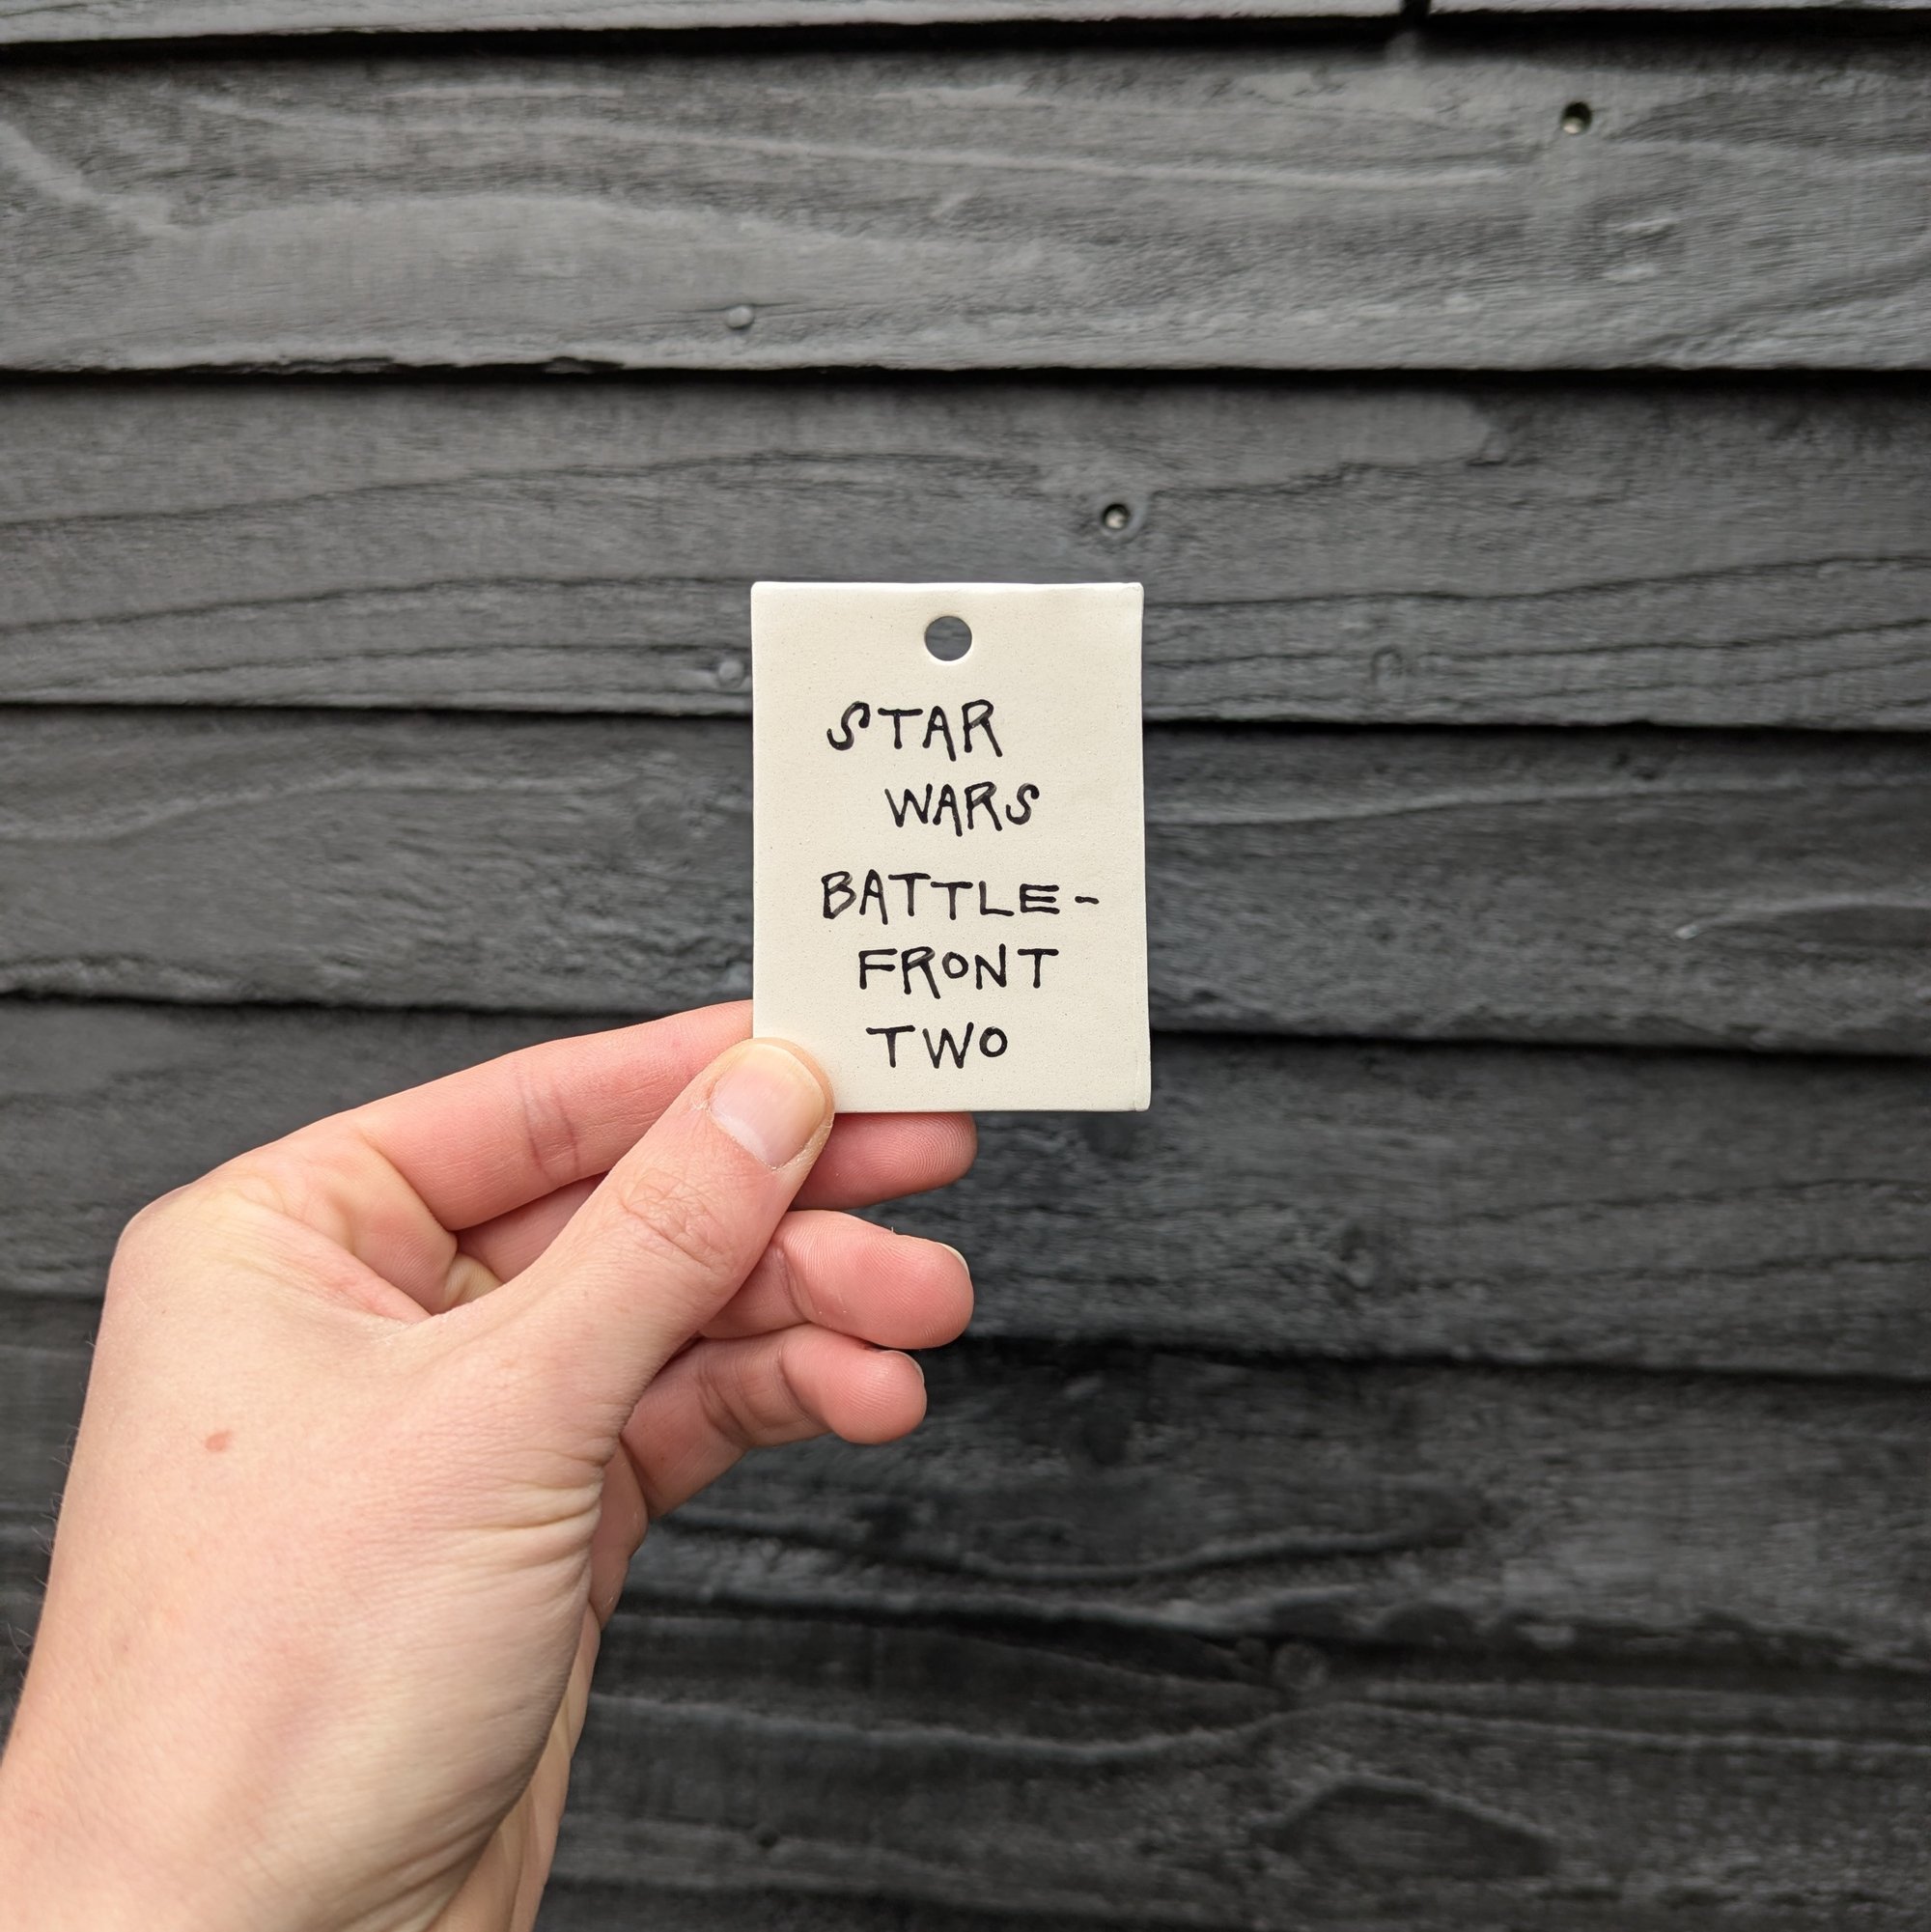 STAR
WARS
BATTLE-
FRONT
TWO